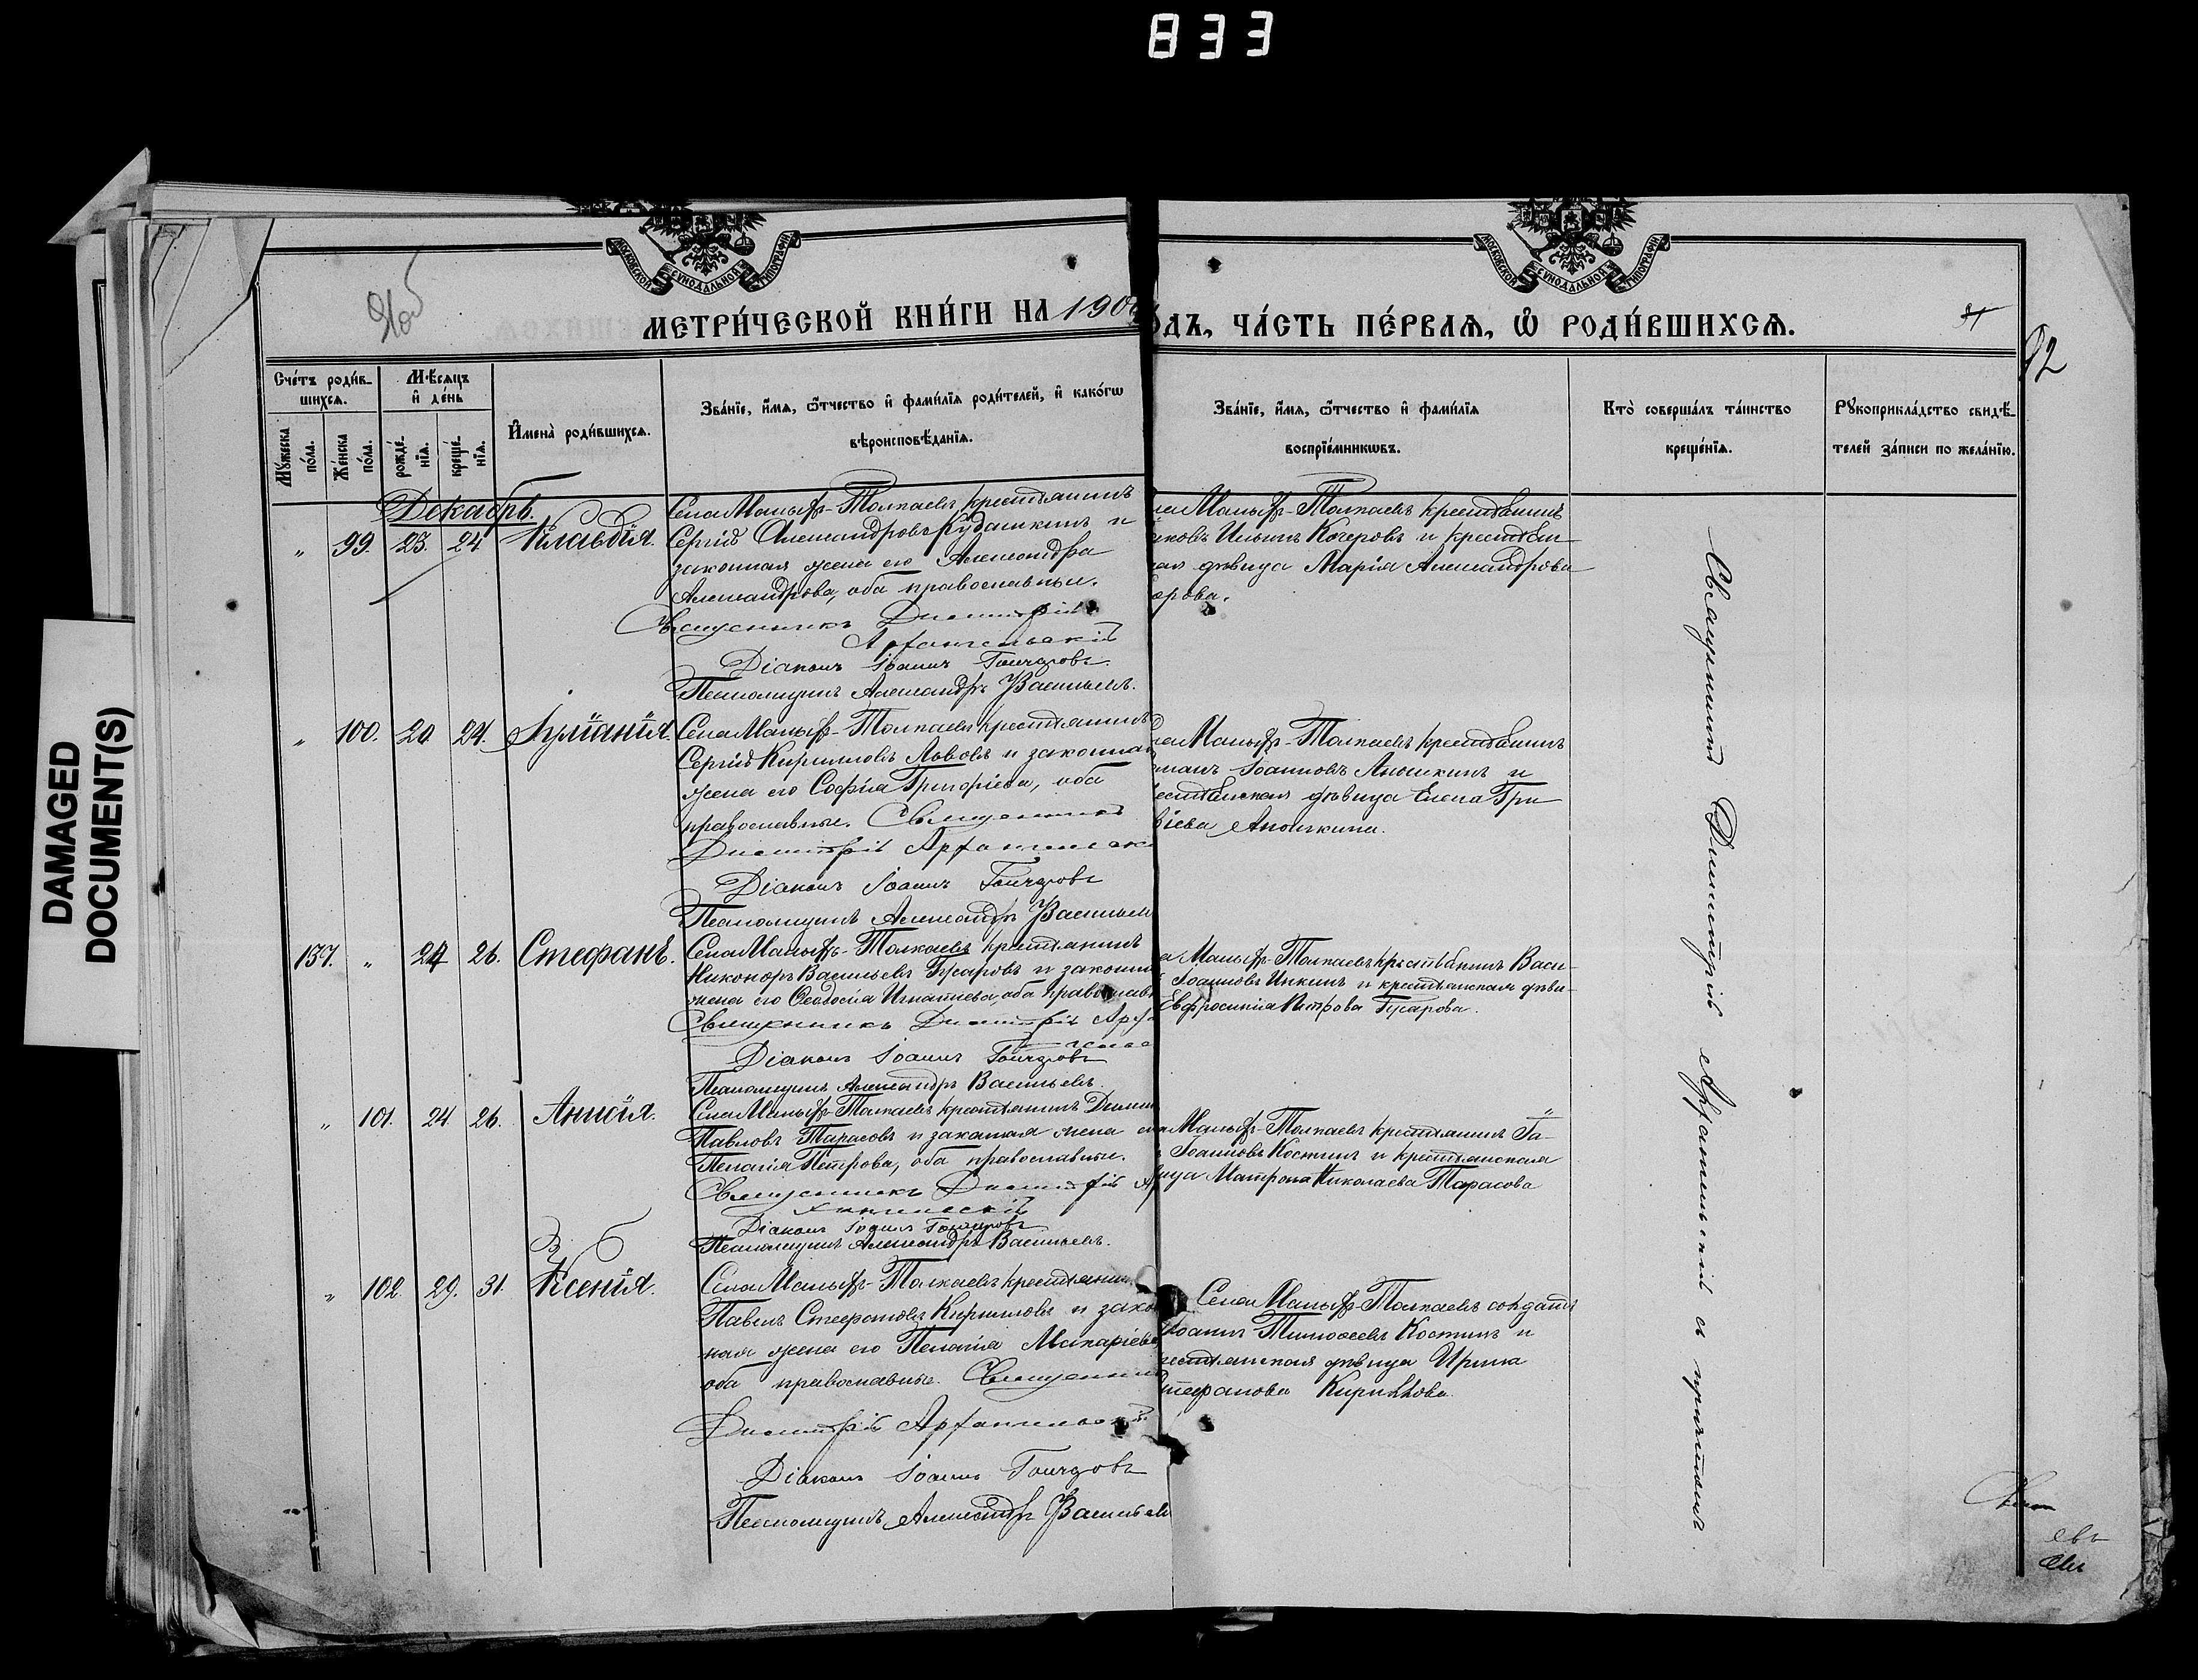 833
DAMAGED
DOCUMENT(S)
МОСКОВСКОЙ СѴНОДАЛЬНОЙ ТИПОГРАФІИ
МОСКОВСКОЙ СѴНОДАЛЬНОЙ ТИПОГРАФІИ
МЕТРИ́ЧЕСКОЙ КНИ́ГИ НА 190
ОДЪ, ЧА́СТЬ ПЕ́РВАѦ, Ѽ РОДИ́ВШИХСѦ.
92
Сче́тъ роди́в-
шихсѧ.
Мѣ́сѧцъ
и҆ де́нь
Мꙋ́жеска по́ла.
Же́нска по́ла.
рожде́-нїѧ.
креще́-нїѧ.
И҆мена̀ роди́вшихсѧ.
Зва́нїе, и҆́мѧ, ѻ҆́тчество и҆ фами́лїѧ роди́телей, и҆ како́гѡ
вѣроисповѣ́данїѧ.
Зва́нїе, и҆́мѧ, ѻ҆́тчество и҆ фами́лїѧ
воспрїе́мникѡвъ.
Кто̀ соверша́лъ та́инство
креще́нїѧ.
Рꙋкоприкла́дство свидѣ́-
телей за́писи по жела́нїю.
Декабрь.
„ 99. 23. 24 Клавдія.
Села Малыхъ-Толкаевъ крестьянинъ
Сергій Александровъ Кудашкинъ и
законная жена его Александра
Александрова, оба православные.
Священникъ Димитрій
Архангельскій
Діаконъ Іоаннъ Гончаровъ.
Псаломщикъ Александръ Васильевъ.
ла Малыхъ-Толкаевъ крестьянинъ
ковъ Ильинъ Кочеровъ и крестьян
ая дѣвица Марія Александрова
орова.
„ 100. 20 24. Іуліанія.
Села Малыхъ-Толкаевъ крестьянинъ
Сергій Кирилловъ Львовъ и законная
жена его Софія Григоріева, оба
православные. Священникъ
Димитрій Архангельск
Діаконъ Іоаннъ Гончаровъ
Псаломщикъ Александръ Васильев
ла Малыхъ-Толкаевъ крестьянинъ
манъ Іоанновъ Аношкинъ и
естьянская дѣвица Елена Гри
ьева Аношкина.
137. „ 24 26. Стефанъ.
Села Малыхъ-Толкаевъ крестьянинъ
Никоноръ Васильевъ Гусаровъ и законн
жена его Ѳеодосія Игнатіева, оба православн
Священникъ Димитрій Арх
Діаконъ Іоаннъ Гончаровъ
Псаломщикъ Александръ Васильевъ.
а Малыхъ-Толкаевъ крестьянинъ Васи-
Іоанновъ Инкинъ и крестьянская дѣви-
Евфросинія Петрова Гусарова.
„ 101. 24. 26. Анисія.
Села Малыхъ-Толкаевъ крестьянинъ Дими
Павловъ Тарасовъ и законная жена е
Пелагія Петрова, оба православные.
Священникъ Димитрій Ар
хангельскій
Діаконъ Іоаннъ Гончаровъ
Псаломщикъ Александръ Васильевъ.
а Малыхъ-Толкаевъ крестьянинъ Га-
Іоанновъ Костинъ и крестьянская
ица Матрона Николаева Тарасова
„ 102. 29. 31. Ксенія.
Села Малыхъ-Толкаевъ крестьянин
Павелъ Стефановъ Кирилловъ и зако
ная жена его Пелагія Макаріева
оба православные. Священник
Димитрій Архангельскій
Діаконъ Іоаннъ Гончаровъ
Псаломщикъ Александръ Васильев
Села Малыхъ-Толкаевъ солдатъ
Іоаннъ Тимоѳеевъ Костинъ и
рестьянская дѣвица Ирина
тефанова Кириллова.
Священникъ Димитрій Архангельскій съ причтомъ
евъ